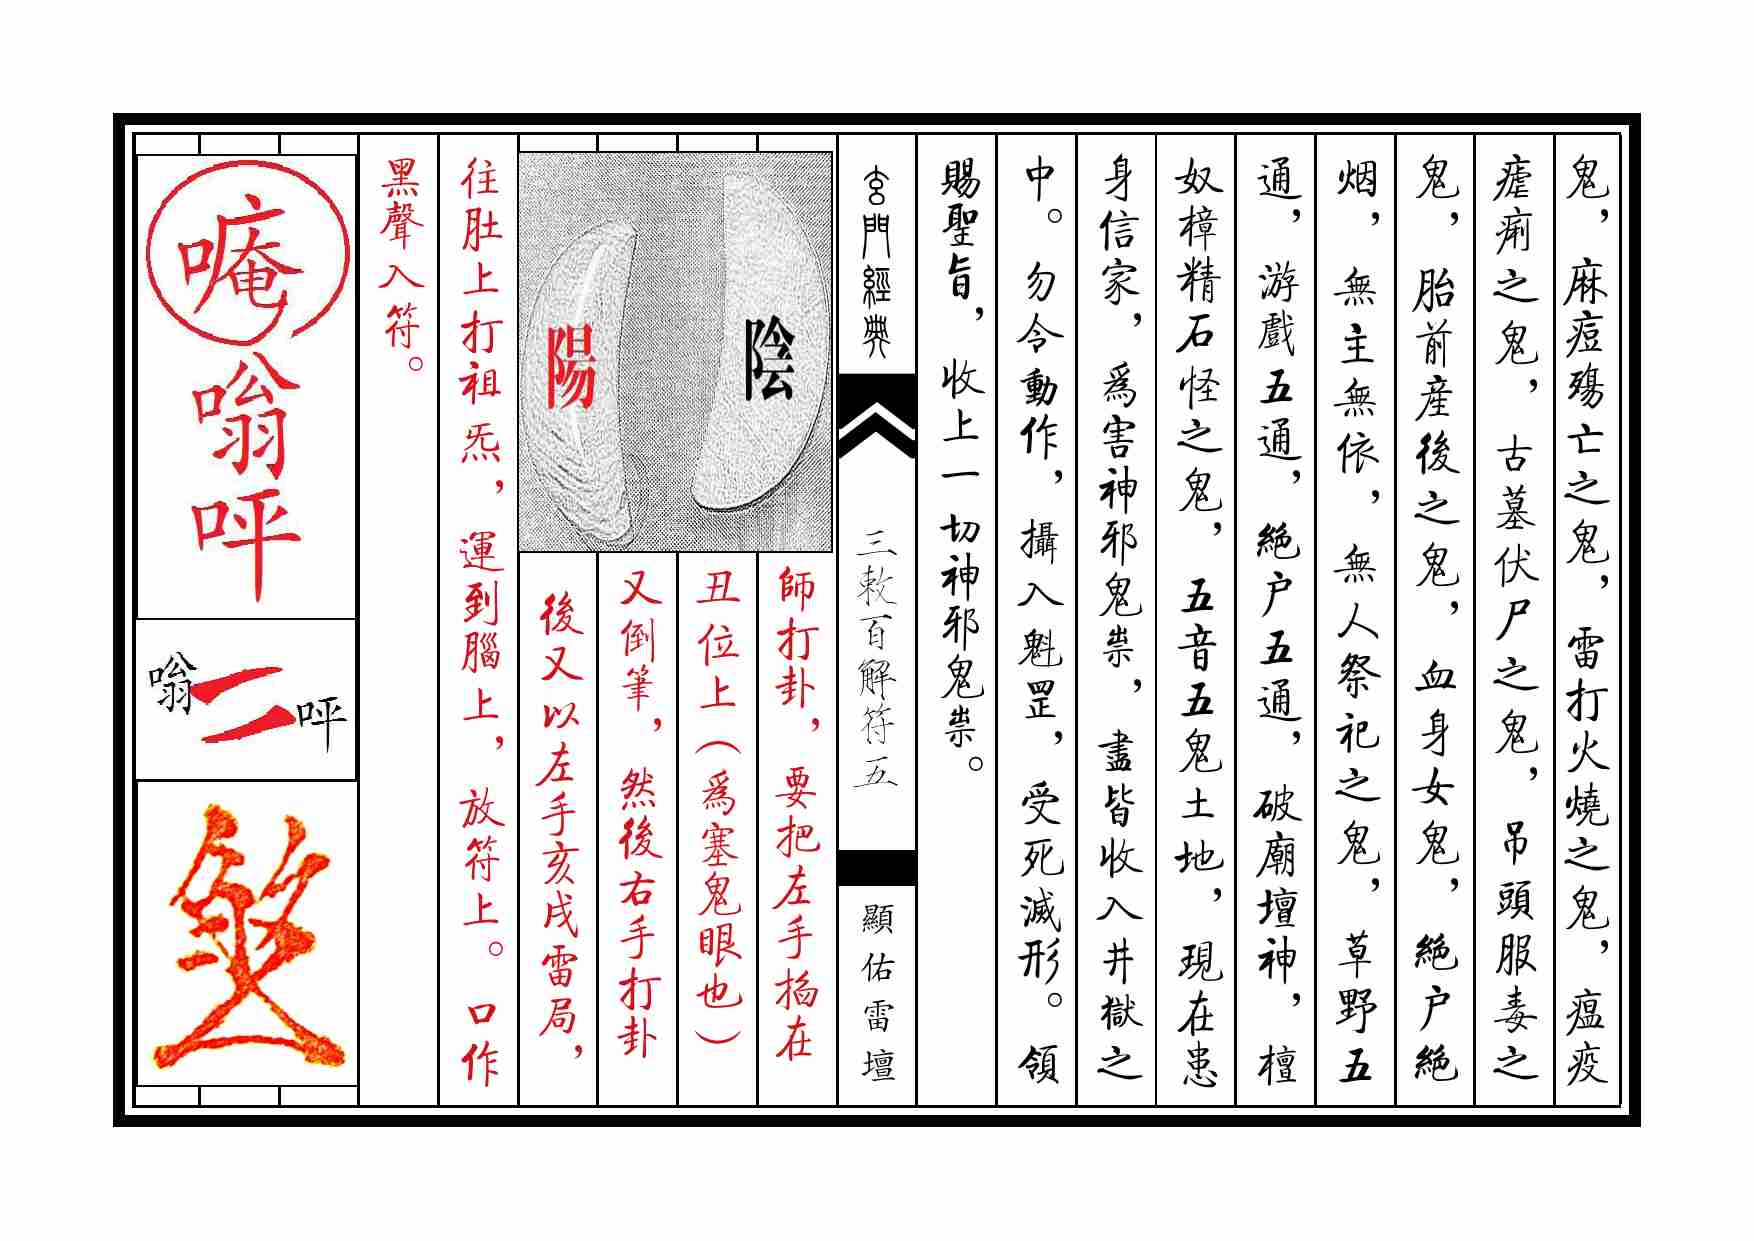 鬼，麻痘殤亡之鬼，雷打火燒之鬼，瘟疫
瘧痢之鬼，古墓伏尸之鬼，吊頭服毒之
鬼，胎前産後之鬼，血身女鬼，絕户絕
烟，無主無依，無人祭祀之鬼，草野五
通，游戲五通，絕户五通，破廟壇神，檀
奴樟精石怪之鬼，五音五鬼土地，現在患
身信家，爲害神邪鬼祟，盡皆收入井獄之
中。勿令動作，攝入魁罡，受死滅形。領
賜聖旨，收上一切神邪鬼祟。
玄門經典
三敕百解符五
顯佑雷壇
陰
陽
師打卦，要把左手搊在
丑位上（爲塞鬼眼也）
又倒筆，然後右手打卦
後又以左手亥戌雷局，
往肚上打祖炁，運到腦上，放符上。口作
黑聲入符。
唵
嗡
呯
嗡
呯